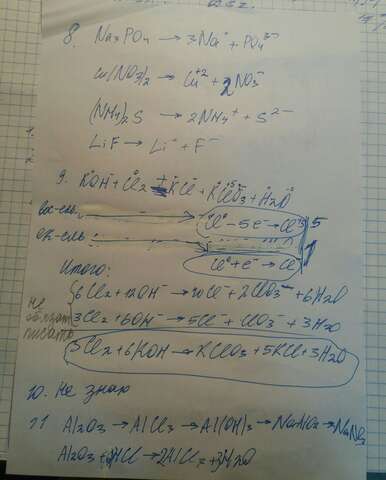 8. Na3PO4 → 3Na+ + PO4 3-
Cu(NO3)2 → Cu+2 + 2NO3-
(NH4)2S → 2NH4+ + S2-
LiF → Li+ + F-
9. KOH + Cl2 → KCl + KClO3 + H2O
вос-ель
Cl0 - 5e- → Cl+5 | 5
ок-ель:
Cl0 + e- → Cl- | 1
Итого:
6Cl2 + 12OH- → 10Cl- + 2ClO3- + 6H2O
не обязат писать
3Cl2 + 6OH- → 5Cl- + ClO3- + 3H2O
3Cl2 + 6KOH → KClO3 + 5KCl + 3H2O
10. Не знаю
11 Al2O3 → AlCl3 → Al(OH)3 → NaAlO2 → NaNO3
Al2O3 + 6HCl → 2AlCl3 + 3H2O